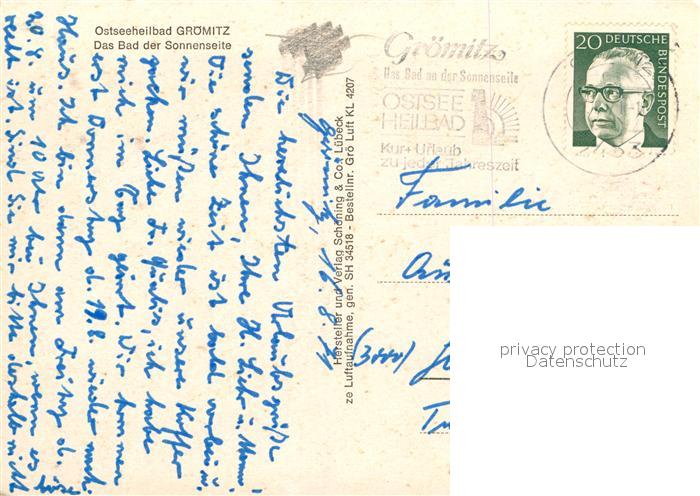 Ostseeheilbad GRÖMITZ
Das Bad der Sonnenseite
Grömitz
Das Bad an der Sonnenseite
OSTSEE
HEILBAD
Kur + Urlaub
zu jeder Jahreszeit
20 DEUTSCHE
BUNDESPOST
2433
Hersteller und Verlag Schöning & Co., Lübeck
ze Luftaufnahme, gen. SH 34518 - Bestellnr. Grö Luft KL 4207
Grömitz, 16.8.71
Die herzlichsten Urlaubsgrüße
senden Ihnen, Ihre H. u.
Die schöne Zeit ist bald vorbei u.
wir müßen wieder unsere Koffer
packen. Liebe Fr. ich habe
mich im Tag geirrt. Wir kommen
erst Donnerstag d. 19.8. wieder nach
Haus. Ich bin dann am Freitag d.
20.8. um 10 Uhr bei Ihnen, wenn es
recht ist. Sind Sie mir bitte deshalb nicht
Familie
(3000)
privacy protection
Datenschutz